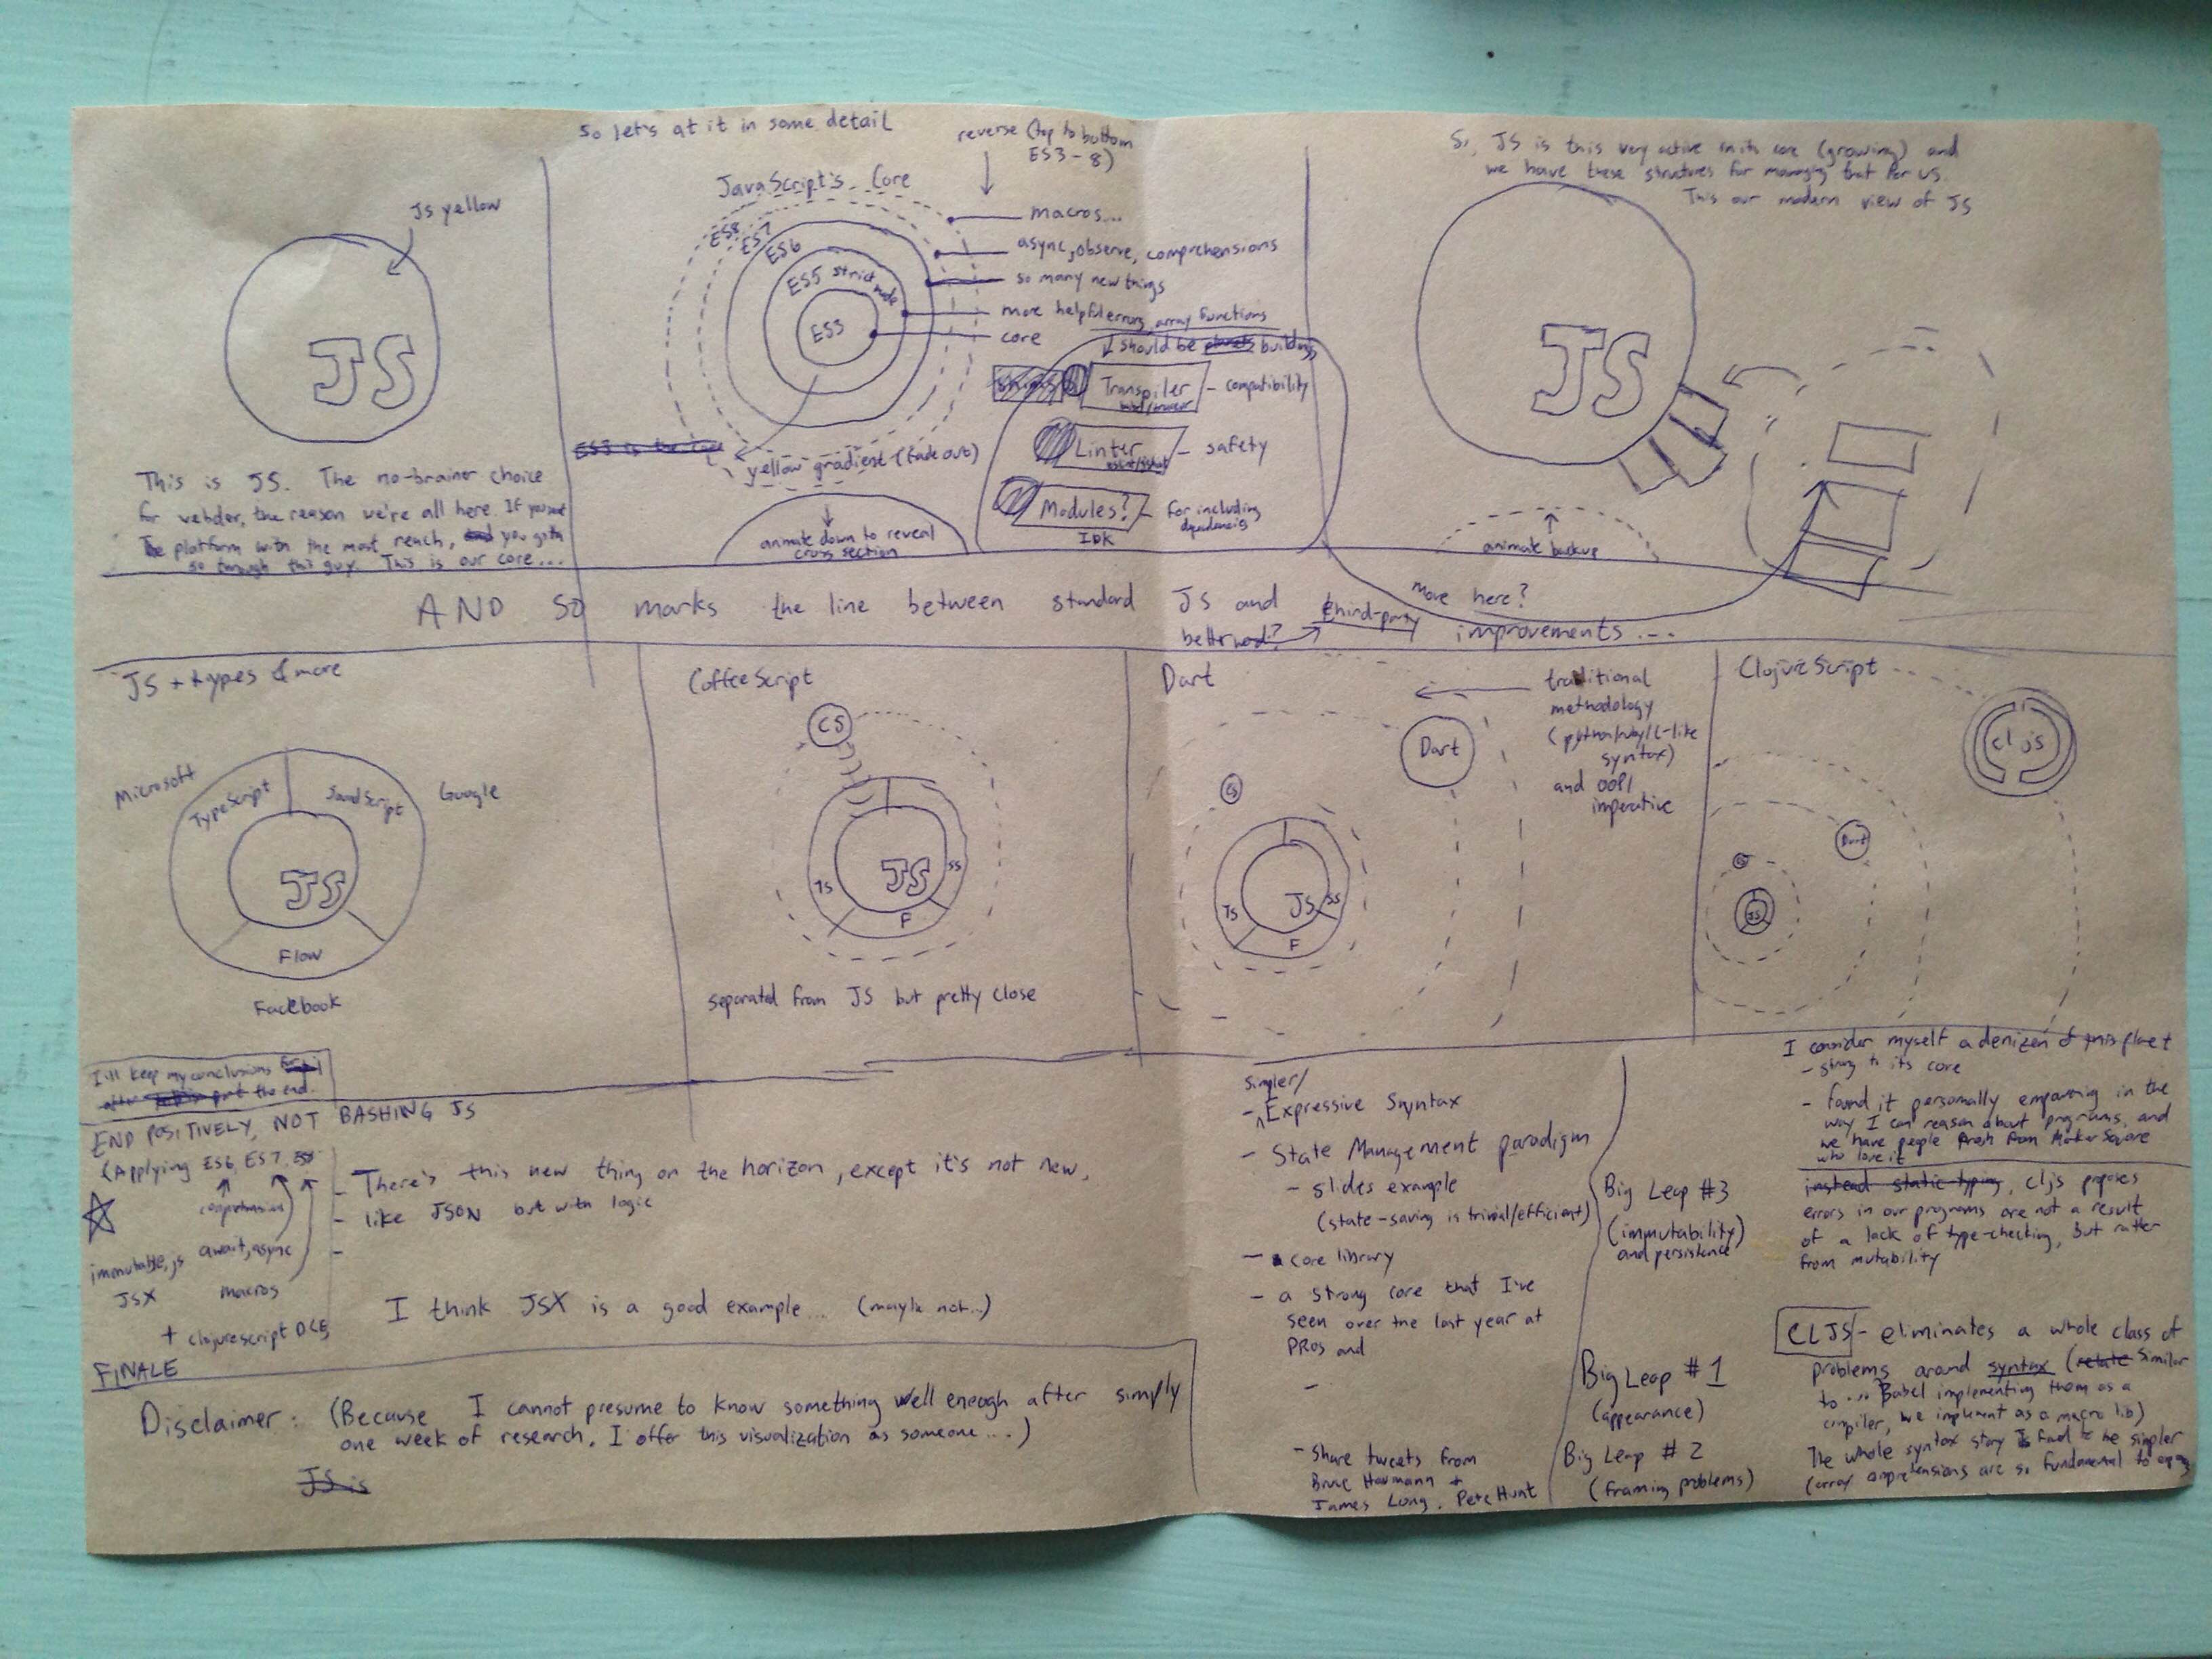 Js yellow
JS
This is JS. The no-brainer choice
for the reason we're all here. If you want
The platform with the most reach, you gotta
go through this guy. This is our core...
So let's at it in some detail
reverse (top to bottom
ES3-8)
JavaScript's Core
ES8
ES7
ES6
ES5 strict mode
ES3
macros...
async, observe, comprehensions
so many new things
more helpful errors, array functions
core
ES3 is the core
yellow gradient (fade out)
animate down to reveal
cross section
should be planets buildings
shims
Transpiler - compatibility
Linter - safety
Modules? - for including
dependencies
IDK
So, JS is this very active in its core (growing) and
we have these structures for managing that for us.
This our modern view of JS
JS
animate backup
move here?
AND SO marks the line between standard JS and third-party improvements...
better word?
JS + types & more
Microsoft
TypeScript
SoundScript
Google
JS
Flow
Facebook
CoffeeScript
CS
JS
TS
SS
F
separated from JS but pretty close
Dart
traditional
methodology
(python/ruby/C-like
syntax)
and OOP/
imperative
Dart
CS
JS
TS
SS
F
ClojureScript
cljs
Dart
CS
JS
I'll keep my conclusions for
the end.
END POSITIVELY, NOT BASHING JS
(Applying ES6, ES7,
comprehension
immutable.js await, async
JSX macros
+ clojurescript DCE
- There's this new thing on the horizon, except it's not new,
- like JSON but with logic
-
I think JSX is a good example... (maybe not...)
FINALE
Disclaimer: (Because I cannot presume to know something well enough after simply
one week of research, I offer this visualization as someone...)
JS is
simpler/
- Expressive Syntax
- State Management paradigm
- slides example
(state-saving is trivial/efficient)
- core library
- a strong core that I've
seen over the last year at
PROS and
-
- share tweets from
Bruce Haumann +
James Long, Pete Hunt
Big Leap #3
(immutability)
and persistence
Big Leap #1
(appearance)
Big Leap #2
(framing problems)
I consider myself a denizen of this planet
- strong to its core
- found it personally empowering in the
way I can reason about programs, and
we have people fresh from MakerSquare
who love it
instead static typing, cljs proposes
errors in our programs are not a result
of a lack of type-checking, but rather
from mutability
CLJS - eliminates a whole class of
problems around syntax (relate similar
to ... Babel implementing them as a
compiler, we implement as a macro lib)
The whole syntax story I find to be simpler
(array comprehensions are so fundamental to